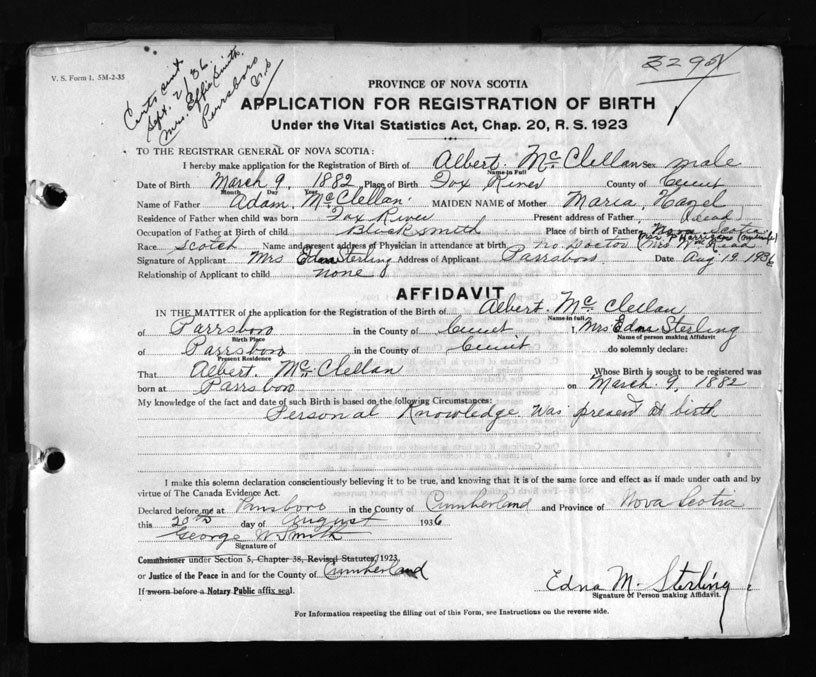 V. S. Form 1. 5M-2-35
Sept. 2/36
Mrs. Effie Smith
Parrsboro
N.S
PROVINCE OF NOVA SCOTIA
APPLICATION FOR REGISTRATION OF BIRTH
Under the Vital Statistics Act, Chap. 20, R. S. 1923
TO THE REGISTRAR GENERAL OF NOVA SCOTIA:
I hereby make application for the Registration of Birth of Albert. McClellan Sex male
Name in Full
Date of Birth March 9, 1882 Place of Birth Fox River County of
Month Day Year
Name of Father Adam, McClellan MAIDEN NAME of Mother Maria, Hazel
Residence of Father when child was born Fox River Present address of Father (dead)
Occupation of Father at Birth of child Blacksmith Place of Birth of Father Nova Scotia
Race Scotch Name and present address of Physician in attendance at birth no Doctor (Mrs
Signature of Applicant Mrs Edna Sterling Address of Applicant Parrsboro Date Aug 19. 1936
Relationship of Applicant to child none
AFFIDAVIT
IN THE MATTER of the application for the Registration of the Birth of Albert. McClellan
Name in full
of Parrsboro in the County of I, Mrs. Edna Sterling
Birth Place Name of person making Affidavit
of Parrsboro in the County of do solemnly declare:
Present Residence
That Albert. McClellan Whose Birth is sought to be registered was
born at Parrsboro on March. 9, 1882
My knowledge of the fact and date of such Birth is based on the following Circumstances:
Personal Knowledge. Was present at birth
I make this solemn declaration conscientiously believing it to be true, and knowing that it is of the same force and effect as if made under oath and by
virtue of The Canada Evidence Act.
Declared before me at Parrsboro in the County of Cumberland and Province of Nova Scotia
this 20th day of August 1936
George W Smith
Signature of
Commissioner under Section 5, Chapter 38, Revised Statutes, 1923,
or Justice of the Peace in and for the County of Cumberland
If sworn before a Notary Public affix seal.
Edna M. Sterling
Signature of Person making Affidavit.
For Information respecting the filling out of this Form, see Instructions on the reverse side.